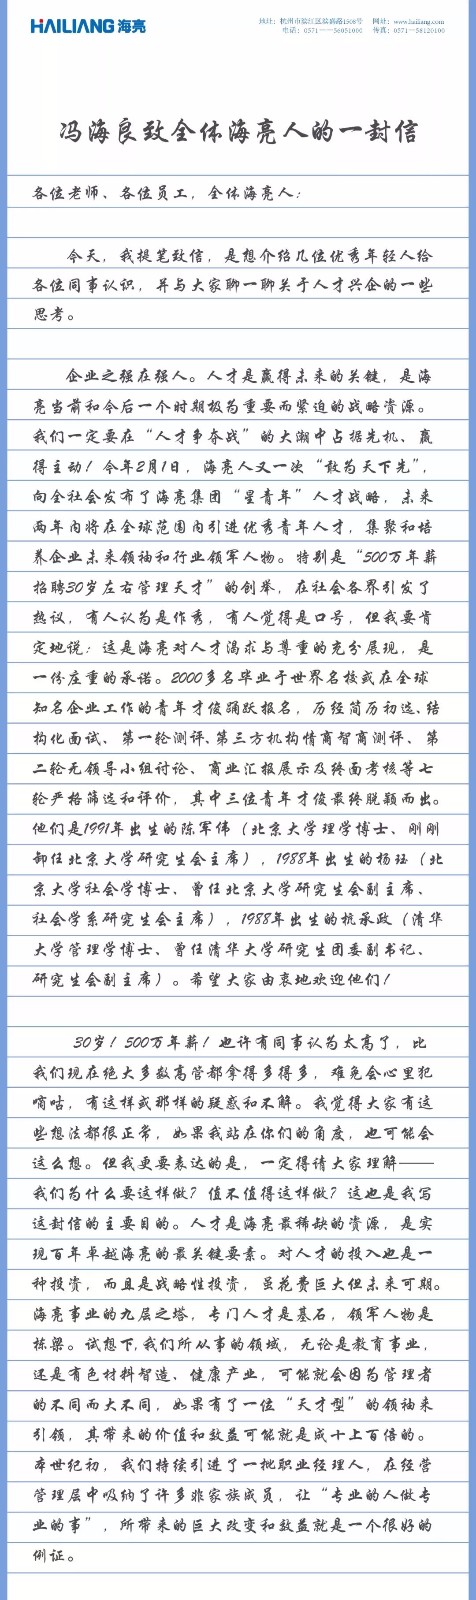 HAILIANG 海亮
地址：杭州市滨江区滨盛路1508号 网址：www.hailiang.com
电话：0571－56051000 传真：0571－58120100
冯海良致全体海亮人的一封信
各位老师、各位员工，全体海亮人：
今天，我提笔致信，是想介绍几位优秀年轻人给
各位同事认识，并与大家聊一聊关于人才兴企的一些
思考。
企业之强在强人。人才是赢得未来的关键，是海
亮当前和今后一个时期极为重要而紧迫的战略资源。
我们一定要在“人才争夺战”的大潮中占据先机、赢
得主动！今年2月1日，海亮人又一次“敢为天下先”，
向全社会发布了海亮集团“星青年”人才战略，未来
两年内将在全球范围内引进优秀青年人才，集聚和培
养企业未来领袖和行业领军人物。特别是“500万年薪
招聘30岁左右管理天才”的创举，在社会各界引发了
热议，有人认为是作秀，有人觉得是口号，但我要肯
定地说：这是海亮对人才渴求与尊重的充分展现，是
一份庄重的承诺。2000多名毕业于世界名校或在全球
知名企业工作的青年才俊踊跃报名，历经简历初选、结
构化面试、第一轮测评、第三方机构情商智商测评、第
二轮无领导小组讨论、商业汇报展示及终面考核等七
轮严格筛选和评价，其中三位青年才俊最终脱颖而出。
他们是1991年出生的陈军伟（北京大学理学博士、刚刚
卸任北京大学研究生会主席），1988年出生的杨珏（北
京大学社会学博士、曾任北京大学研究生会副主席、
社会学系研究生会主席），1988年出生的杭承政（清华
大学管理学博士、曾任清华大学研究生团委副书记、
研究生会副主席）。希望大家由衷地欢迎他们！
30岁！500万年薪！也许有同事认为太高了，比
我们现在绝大多数高管都拿得多得多，难免会心里犯
嘀咕，有这样或那样的疑惑和不解。我觉得大家有这
些想法都很正常，如果我站在你们的角度，也可能会
这么想。但我更要表达的是，一定得请大家理解——
我们为什么要这样做？值不值得这样做？这也是我写
这封信的主要目的。人才是海亮最稀缺的资源，是实
现百年卓越海亮的最关键要素。对人才的投入也是一
种投资，而且是战略性投资，虽花费巨大但未来可期。
海亮事业的九层之塔，专门人才是基石，领军人物是
栋梁。试想下，我们所从事的领域，无论是教育事业，
还是有色材料智造、健康产业，可能就会因为管理者
的不同而大不同，如果有了一位“天才型”的领袖来
引领，其带来的价值和效益可能就是成十上百倍的。
本世纪初，我们持续引进了一批职业经理人，在经营
管理层中吸纳了许多非家族成员，让“专业的人做专
业的事”，所带来的巨大改变和效益就是一个很好的
例证。